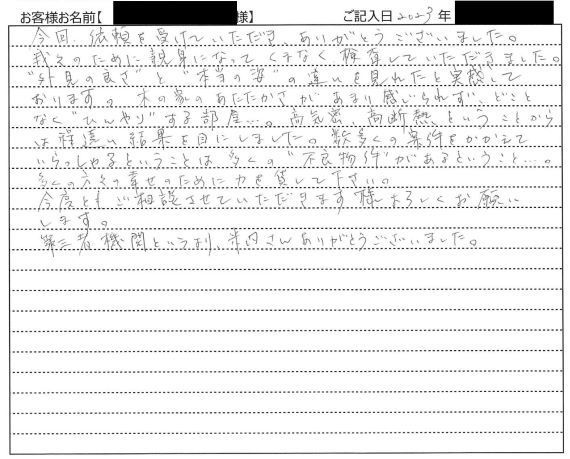 お客様お名前【 様】 ご記入日 2023年
今回、依頼を受けていただき ありがとうございました。
我々のために親身になって くまなく検査していただきました。
"外見の良さ"と"本当の姿"の違いを見れたと実感して
おります。木の家のあたたかさが あまり感じられず、どこと
なく"ひんやり"する部屋…。高気密、高断熱 ということから
は程遠い結果を目にしました。数多くの案件をかかえて
いらっしゃるということは 多くの"不良物件"があるということ…。
多くの方々の幸せのために力を貸して下さい。
今後とも ご相談させていただきます 様 よろしくお願い
します。
第三者機関というより、米内さんありがとうございました。